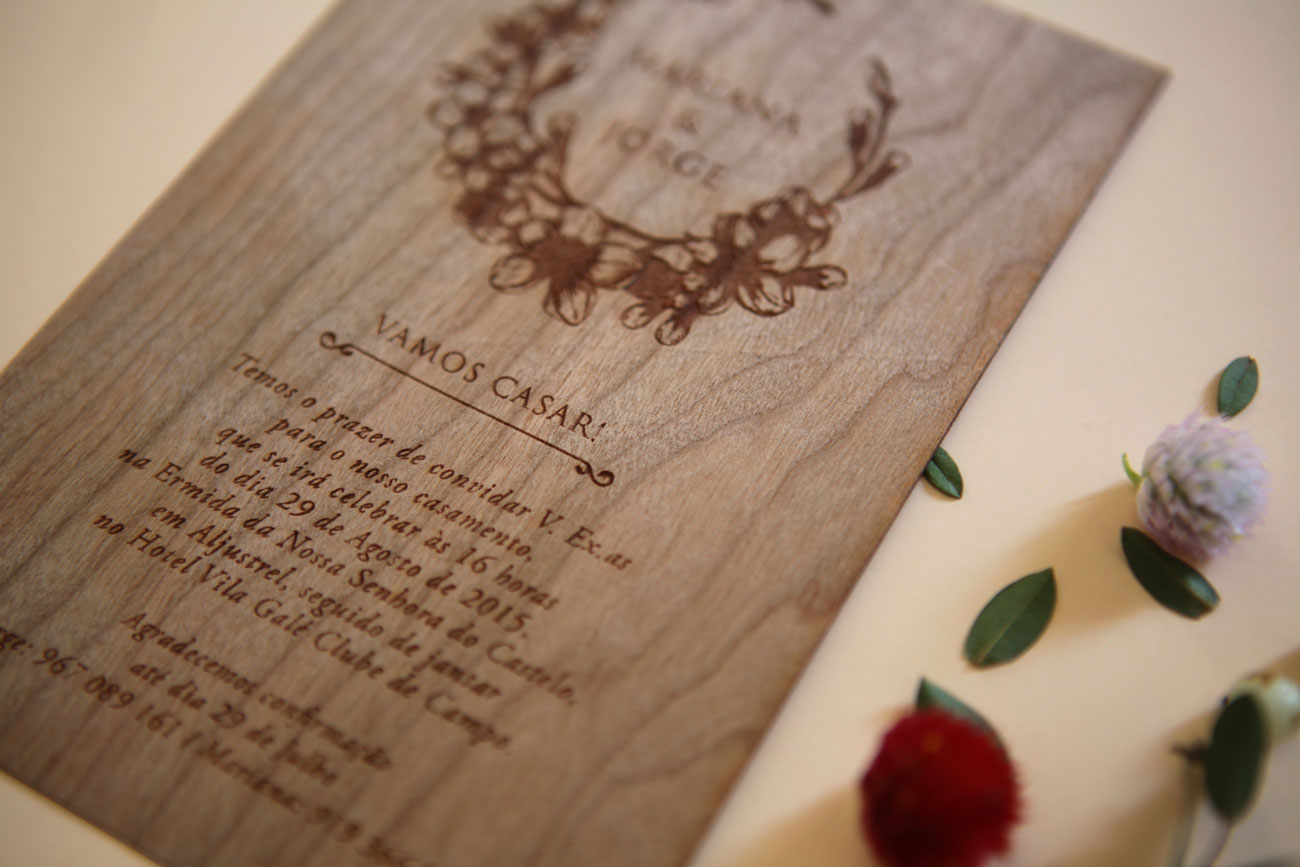 MARIANA
&
JORGE
VAMOS CASAR!
Temos o prazer de convidar V. Ex.as
para o nosso casamento,
que se irá celebrar às 16 horas
do dia 29 de Agosto de 2015.
na Ermida da Nossa Senhora do Castelo,
em Aljustrel, seguido de jantar
no Hotel Vila Galé Clube de Campo.
Agradecemos confirmação
até dia 29 de Julho
967 089 161 | Mariana: 919